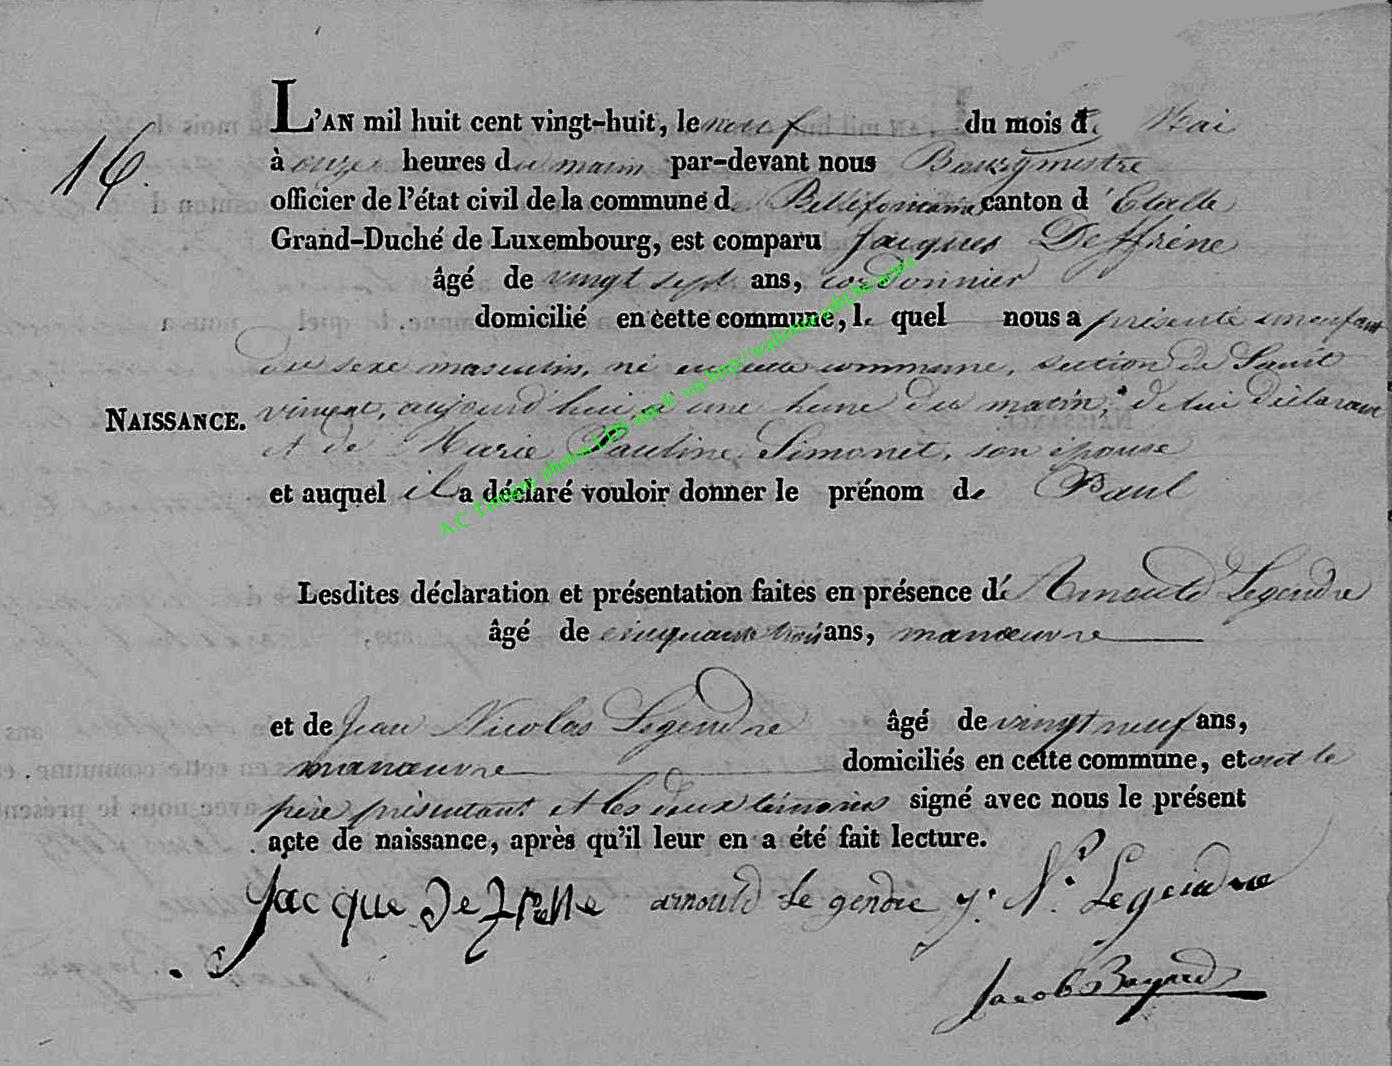 L'AN mil huit cent vingt-huit, le neuf du mois de Mai
16.
à onze heures du matin par-devant nous Bourgmestre
officier de l'état civil de la commune de Bellefontaine canton d'Etalle
Grand-Duché de Luxembourg, est comparu Jacques Deffrène
âgé de vingt sept ans, cordonnier
domicilié en cette commune, le quel nous a présenté un enfant
du sexe masculin, né en cette commune, section de Saint
NAISSANCE. vincent, aujourd'hui à une heure du matin, de lui déclarant
et de Marie Pauline Simonet, son épouse
et auquel il a déclaré vouloir donner le prénom de Paul
A C Tintigny photos LDS via http://
Lesdites déclaration et présentation faites en présence d'Arnould Legendre
âgé de cinquante trois ans, manœuvre
et de Jean Nicolas Legendre âgé de vingt neuf ans,
manœuvre domiciliés en cette commune, et ont le
père présentant et les deux témoins signé avec nous le présent
acte de naissance, après qu'il leur en a été fait lecture.
Jacque arnould Le gendre J. N. Legendre
Jacob Bayard